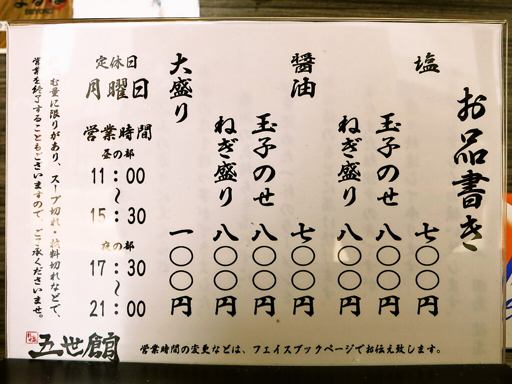 お品書き
塩 七〇〇円
玉子のせ 八〇〇円
ねぎ盛り 八〇〇円
醤油 七〇〇円
玉子のせ 八〇〇円
ねぎ盛り 八〇〇円
大盛り 一〇〇円
定休日
月曜日
営業時間
昼の部
11：00
〜
15：30
夜の部
17：30
〜
21：00
量に限りがあり、スープ切れ・材料切れなどで、
営業を終了することもございますので、ご了承くださいませ。
五世館
営業時間の変更などは、フェイスブックページでお伝え致します。